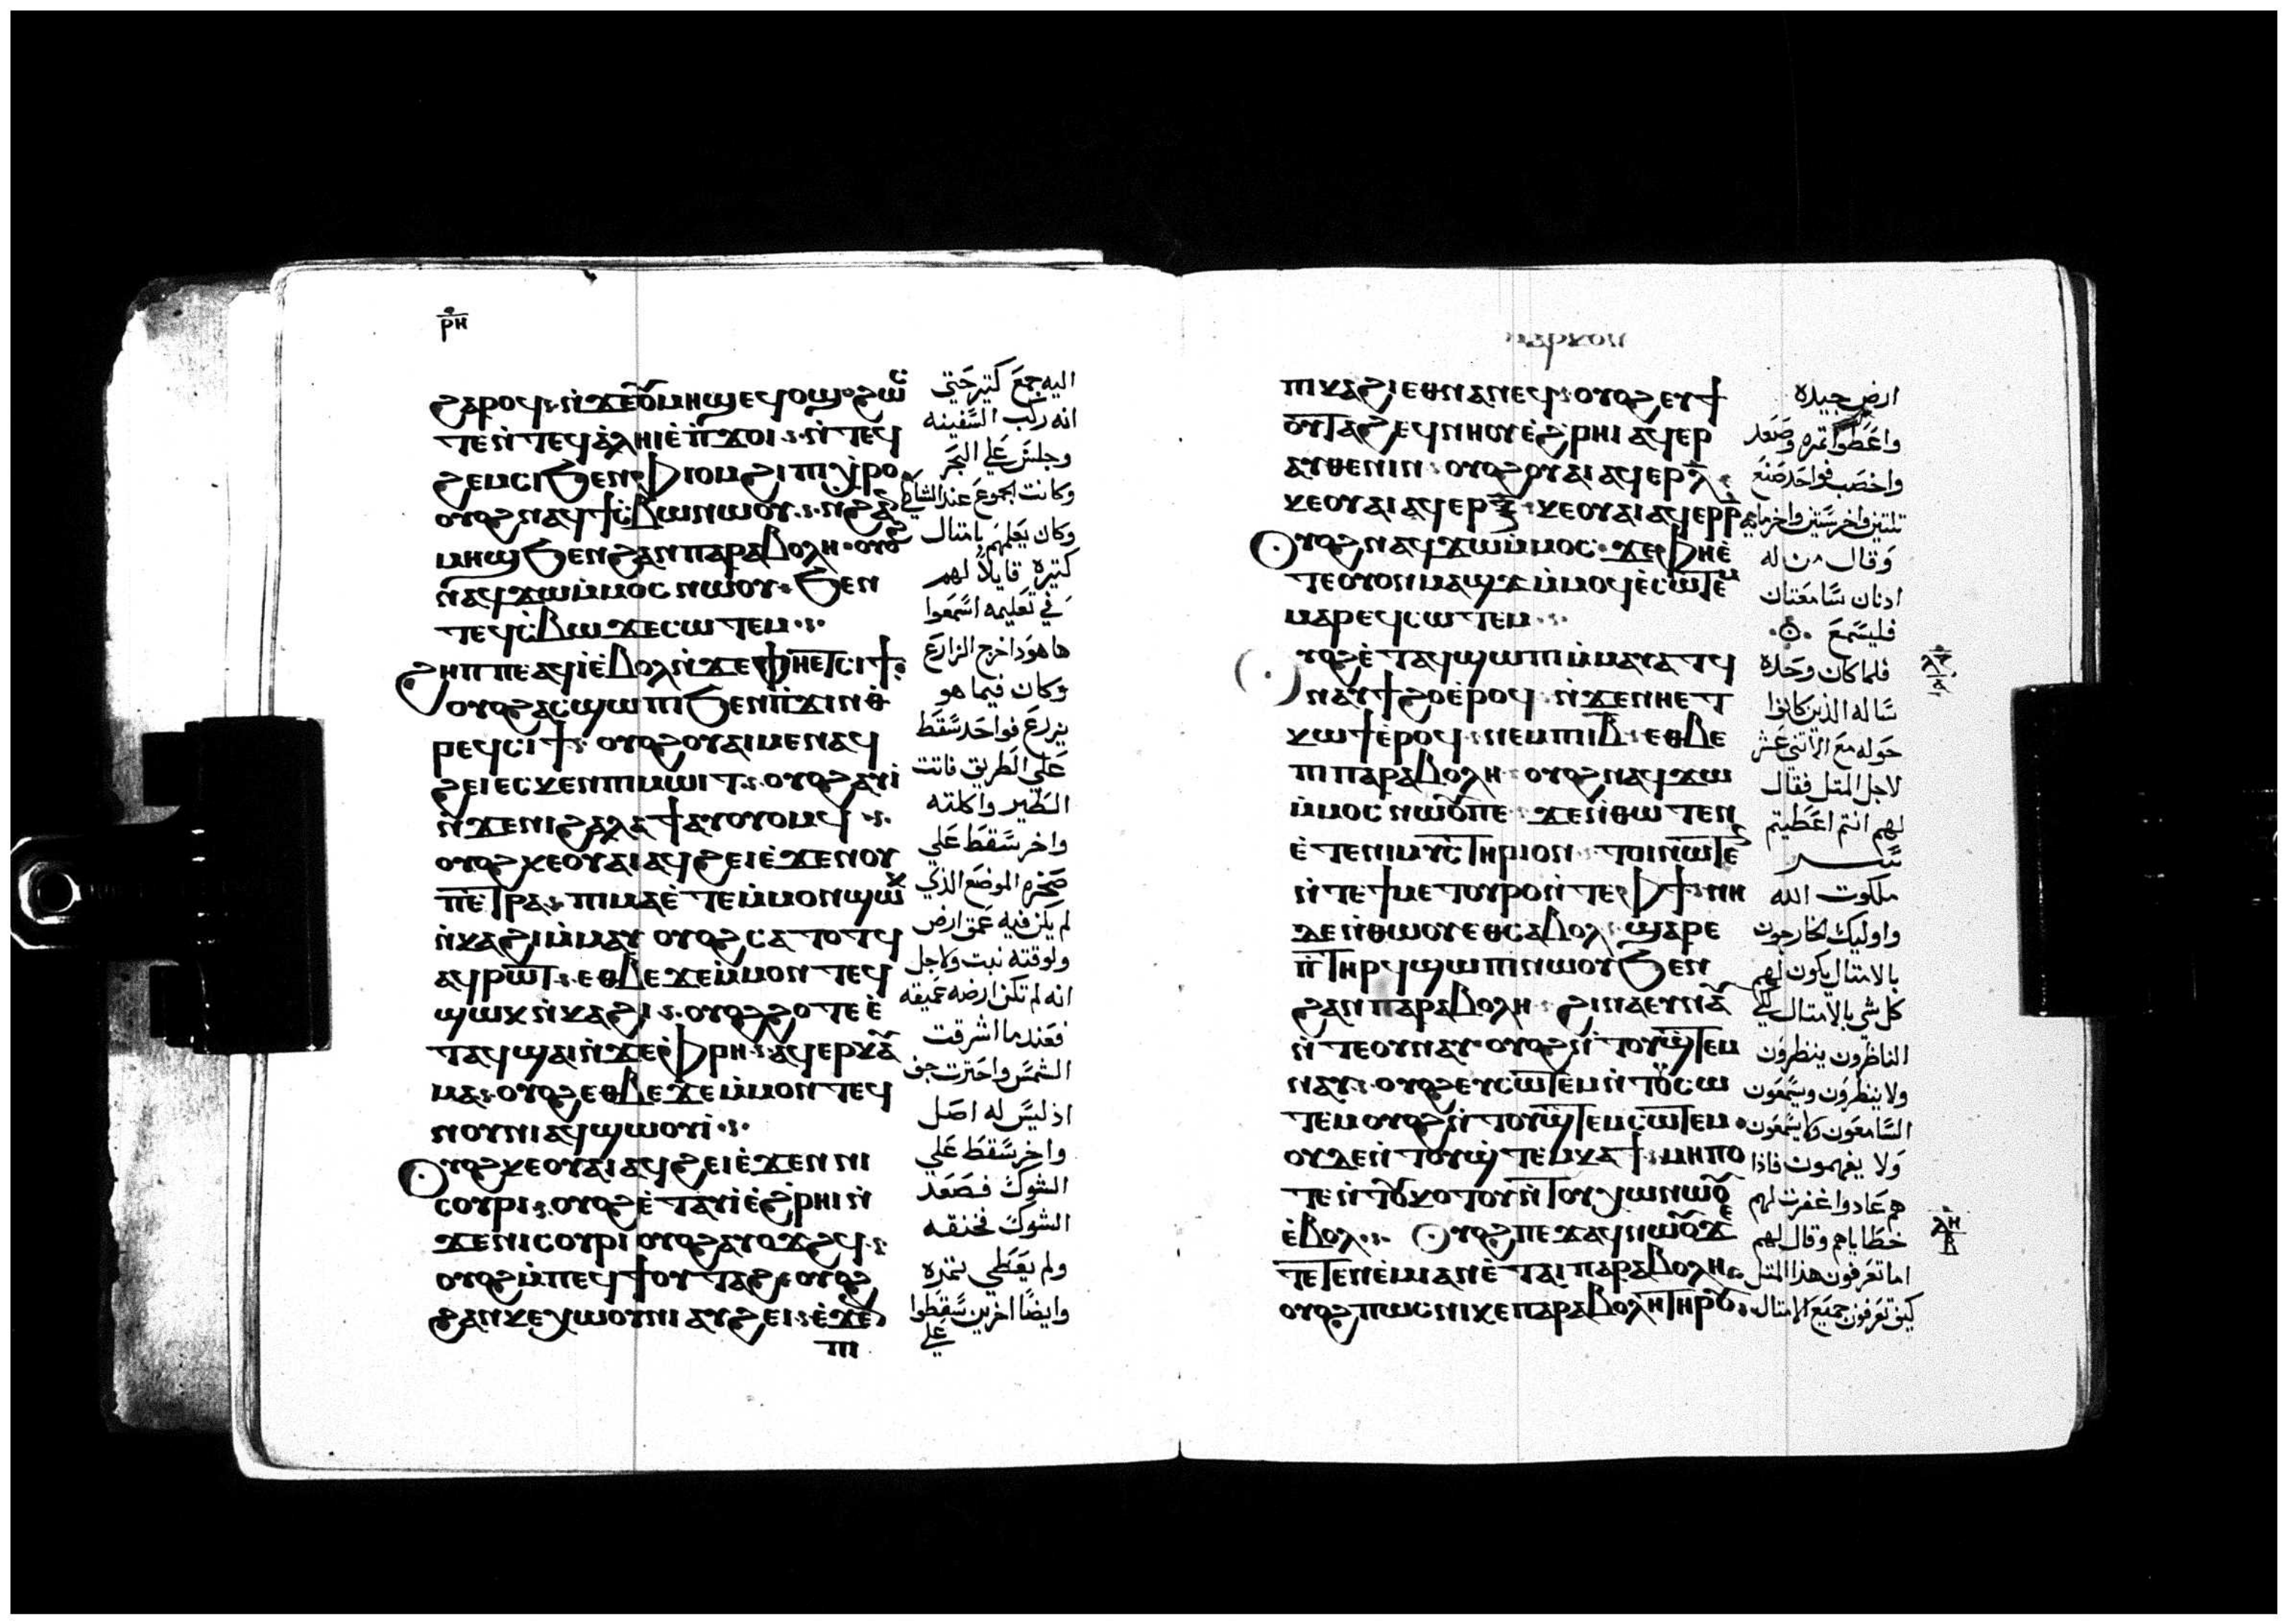 ⲣⲏ
ϩⲁⲣⲟϥ ⲛ̀ϫⲉⲟⲩⲙⲏϣ ⲉϥⲟϣ ϩⲱⲥ
ⲧⲉ ⲛ̀ⲧⲉϥⲁ̀ⲗⲏⲓ ⲉ̀ⲡ̀ϫⲟⲓ ⲛ̀ⲧⲉϥ
ϩⲉⲙⲥⲓ ϧⲉⲛⲫ̀ⲓⲟⲙ ϩⲓⲡⲓⲭⲣⲟ
ⲟⲩⲟϩ ⲛⲁϥϯⲥ̀ⲃⲱ ⲛⲱⲟⲩ ⲛ̀ϩⲁⲛ
ⲙⲏϣ ϧⲉⲛϩⲁⲛⲡⲁⲣⲁⲃⲟⲗⲏ ⲟⲩⲟϩ
ⲛⲁϥϫⲱ ⲙ̀ⲙⲟⲥ ⲛⲱⲟⲩ ϧⲉⲛ
ⲧⲉϥⲥ̀ⲃⲱ ϫⲉⲥⲱⲧⲉⲙ
ϩⲏⲡⲡⲉ ⲁϥⲓ̀ ⲉ̀ⲃⲟⲗ ⲛ̀ϫⲉⲫⲏⲉⲧⲥⲓϯ
ⲟⲩⲟϩ ⲁⲥϣⲱⲡⲓ ϧⲉⲛⲡ̀ϫⲓⲛⲑ
ⲣⲉϥⲥⲓϯ ⲟⲩⲟϩ ⲟⲩⲁⲓ ⲙⲉⲛ ⲁϥ
ϩⲉⲓ ⲉⲥⲕⲉⲛⲡⲓⲙⲱⲓⲧ ⲟⲩⲟϩ ⲁⲩⲓ̀
ⲛ̀ϫⲉⲛⲓϩⲁⲗⲁϯ ⲁⲩⲟⲩⲟⲙϥ
ⲟⲩⲟϩ ⲕⲉⲟⲩⲁⲓ ⲁϥϩⲉⲓ ⲉ̀ϫⲉⲛⲟⲩ
ⲡⲉⲧⲣⲁ ⲡⲓⲙⲁ ⲉ̀ⲧⲉⲙ̀ⲙⲟⲛ ϣⲱⲕ
ⲛ̀ⲕⲁϩⲓ ⲙ̀ⲙⲁⲩ ⲟⲩⲟϩ ⲥⲁⲧⲟⲧϥ
ⲁϥⲣⲱⲧ ⲉⲑⲃⲉϫⲉⲙ̀ⲙⲟⲛⲧⲉϥ
ϣⲱⲕ ⲛ̀ⲕⲁϩⲓ ⲟⲩⲟϩ ϩⲟⲧⲉ ⲉ̀
ⲧⲁϥϣⲁⲓ ⲛ̀ϫⲉⲫ̀ⲣⲏ ⲁϥⲉⲣⲕⲁⲩ
ⲙⲁ ⲟⲩⲟϩ ⲉⲑⲃⲉϫⲉⲙ̀ⲙⲟⲛⲧⲉϥ
ⲛⲟⲩⲛⲓ ⲁϥϣⲱⲟⲩⲓ̀
ⲟⲩⲟϩ ⲕⲉⲟⲩⲁⲓ ⲁϥϩⲉⲓ ⲉ̀ϫⲉⲛⲛⲓ
ⲥⲟⲩⲣⲓ ⲟⲩⲟϩ ⲉ̀ⲧⲁⲩⲓ̀ ⲉ̀ϩⲣⲏⲓ ⲛ̀
ϫⲉⲛⲓⲥⲟⲩⲣⲓ ⲟⲩⲟϩ ⲁⲩⲟϫϩϥ
ⲟⲩⲟϩ ⲙ̀ⲡⲉϥϯⲟⲩⲧⲁϩ ⲟⲩⲟϩ
ϩⲁⲛⲕⲉⲭⲱⲟⲩⲛⲓ ⲁⲩϩⲉⲓ ⲉ̀ϫⲉⲛ
ⲡⲓ
اليه جمع كتير حتى
انه ركب السفينه
وجلس علي البحر
وكانت الجموع عند الشاطي
وكان يعلمهم بامتال
كتيرة قايلاً لهم
في تعليمه اسمعوا
ها هوذا خرج الزارع
وكان فيما هو
يزرع فواحد سقط
علي الطريق فاتت
الطير واكلته
واخر سقط علي
صخره الموضع الذي
لم يكن فيه عمق ارض
ولوقته نبت ولاجل
انه لم تكن ارضه عميقه
فعندما اشرقت
الشمس واحترت جف
اذ ليس له اصل
واخر سقط علي
الشوك فصعد
الشوك فخنقه
ولم يعطي تمره
وايضًا اخرين سقطوا
علي
ⲙⲁⲣⲕⲟⲛ
ⲡⲓⲕⲁϩⲓ ⲉⲑⲛⲁⲛⲉϥ ⲟⲩⲟϩ ⲉⲩϯ
ⲟⲩⲧⲁϩ ⲉϥⲛⲏⲟⲩ ⲉ̀ϩⲣⲏⲓ ⲁϥⲉⲣ
ⲁⲩⲑⲉⲛⲓⲛ ⲟⲩⲟϩ ⲟⲩⲁⲓ ⲁϥⲉⲣⲗ̅
ⲕⲉⲟⲩⲁⲓ ⲁϥⲉⲣⲝ̅ ⲕⲉⲟⲩⲁⲓ ⲁϥⲉⲣⲣ̅
ⲟⲩⲟϩ ⲛⲁϥϫⲱ ⲙ̀ⲙⲟⲥ ϫⲉⲫ̀ⲏⲉ̀
ⲧⲉⲟⲩⲟⲛⲙⲁϣϫ ⲙ̀ⲙⲟϥ ⲉ̀ⲥⲱⲧⲉⲙ
ⲙⲁⲣⲉϥⲥⲱⲧⲉⲙ
ⲟⲩⲟϩ ⲉ̀ⲧⲁϥϣⲱⲡⲓ ⲙ̀ⲙⲁⲩⲁⲧϥ
ⲛⲁⲩϯϩⲟ ⲉ̀ⲣⲟϥ ⲛ̀ϫⲉⲛⲏⲉⲧ
ⲕⲱϯ ⲉ̀ⲣⲟϥ ⲛⲉⲙⲡⲓⲓ̅ⲃ̅ ⲉⲑⲃⲉ
ⲡⲓⲡⲁⲣⲁⲃⲟⲗⲏ ⲟⲩⲟϩ ⲛⲁϥϫⲱ
ⲙ̀ⲙⲟⲥ ⲛⲱⲟⲩⲡⲉ ϫⲉⲛ̀ⲑⲱⲧⲉⲛ
ⲉ̀ⲧⲉⲛⲓⲙⲩⲥⲧⲏⲣⲓⲟⲛ ⲧⲟⲓⲛⲱⲧⲉⲛ
ⲛ̀ⲧⲉϯⲙⲉⲧⲟⲩⲣⲟ ⲛ̀ⲧⲉⲫ̀ϯ ⲛⲏ
ⲇⲉ ⲛ̀ⲑⲱⲟⲩ ⲉⲑⲥⲁⲃⲟⲗ ϣⲁⲣⲉ
ⲡ̀ⲧⲏⲣϥ ϣⲱⲡⲓ ⲛⲱⲟⲩ ϧⲉⲛ
ϩⲁⲛⲡⲁⲣⲁⲃⲟⲗⲏ ϩⲓⲛⲁ ⲉⲩⲛⲁⲩ
ⲛ̀ⲧⲉⲟⲩⲛⲁⲩ ⲟⲩⲟϩ ⲛ̀ⲧⲟⲩϣⲧⲉⲙ
ⲛⲁⲩ ⲟⲩⲟϩ ⲉⲩⲥⲱⲧⲉⲙ ⲛ̀ⲧⲟⲩⲥⲱ
ⲧⲉⲙ ⲟⲩⲟϩ ⲛ̀ⲧⲟⲩϣⲧⲉⲙⲥⲱⲧⲉⲙ
ⲟⲩⲇⲉ ⲛ̀ⲧⲟⲩϣ̀ⲧⲉⲙⲕⲁϯ ⲙⲏⲡⲟ
ⲧⲉ ⲛ̀ⲧⲟⲩⲕⲟⲧⲟⲩ ⲛ̀ⲧⲟⲩⲭⲱ ⲛⲱⲟⲩ
ⲉ̀ⲃⲟⲗ ⲟⲩⲟϩ ⲡⲉϫⲁϥ ⲛⲱⲟⲩ ϫⲉ
ⲧⲉⲧⲉⲛⲉ̀ⲙⲓ ⲁⲛ ⲉ̀ⲧⲁⲓⲡⲁⲣⲁⲃⲟⲗⲏ
ⲟⲩⲟϩ ⲡⲱⲥ ⲛⲓⲕⲉⲡⲁⲣⲁⲃⲟⲗⲏ ⲧⲏⲣⲟⲩ
ارض جيده
واعطوا تمره وصعد
واخصب فواحد صنع
تلتين واخر ستين واخر مايه
وقال من له
ادنان سامعتان
فليسمع
فلما كان وحده
ساله الذين كانوا
حوله مع الاتني عشر
لاجل المتل فقال
لهم انتم اعطيتم
سر
ملكوت الله
واوليك الخارجون
بالامتال يكون لهم
كل شي بالامتال لكي
الناظرون ينظرون
ولا ينظرون ويسمعون
السامعون ولا يسمعون
ولا يفهمون فاذا
هم عادوا غفرت لهم
خطاياهم وقال لهم
اما تعرفون هذا المتل
كيف تعرفون جميع الامتال